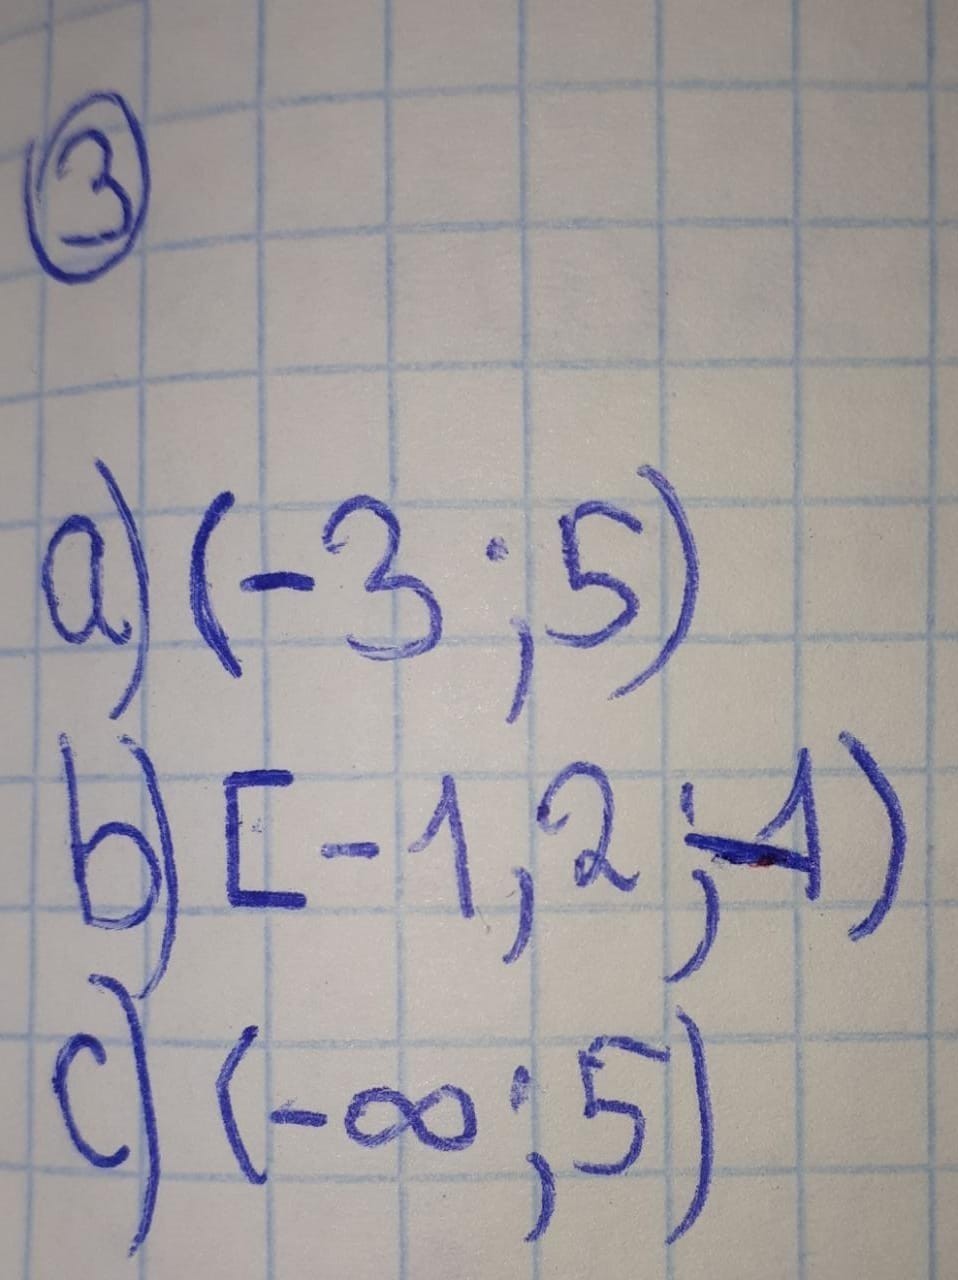 3
a) (-3;5)
b) [-1,2;-1)
c) (-∞;5)